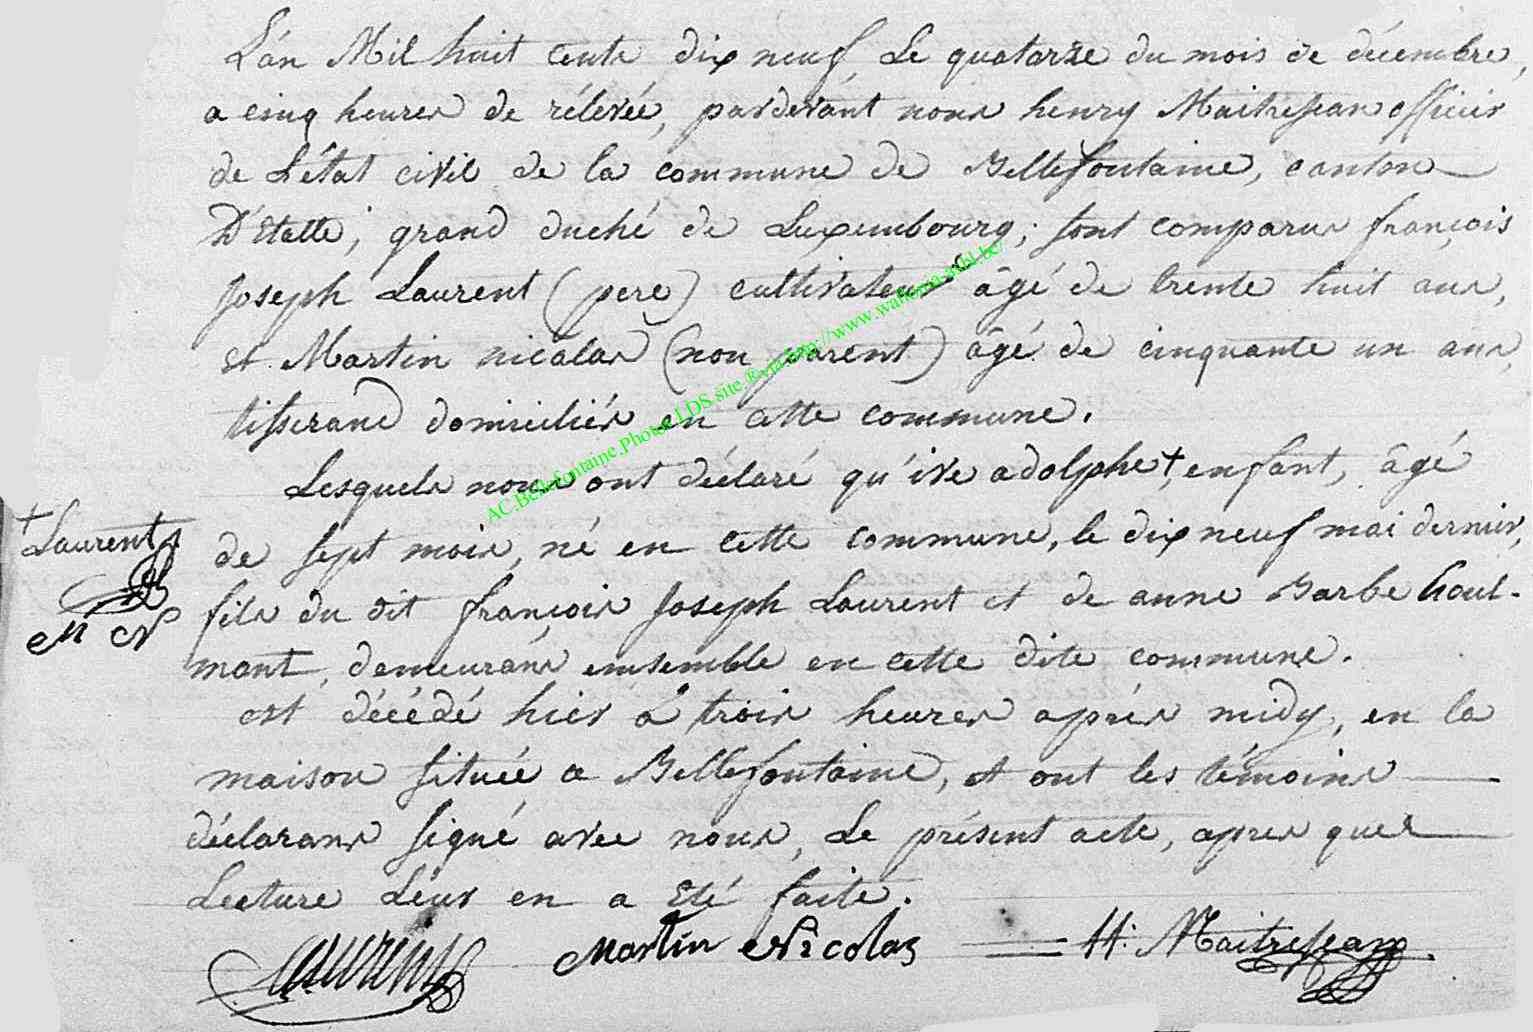 L'án Mil huit cents dix neuf, Le quatorze du mois de décembre,
a cinq heures de rélevée, pardevant nous henry Maitrejean officier
de L'état civil de la commune de Bellefontaine, canton
D'Etalle, grand duché de Luxembourg; sont comparus françois
Joseph Laurent (pere) cultivateur âgé de trente huit ans,
et Martin nicolas (non parent) âgé de cinquante un ans,
tisserand domiciliés en cette commune.
Lesquels nous ont déclaré qu'ive adolphe +, enfant, âgé
+ Laurent
de sept mois, né en cette commune, le dix neuf mai dernier,
fils du dit françois Joseph Laurent et de anne Barbe Goul-
M N
mont, demeurans ensemble en cette dite commune.
est décédé hier à trois heures aprés midy, en la
maison située a Bellefontaine, et ont les témoins
déclarans signé avec nous, Le présent acte, apres que
Lecture Leur en a Eté faite.
Laurent Martin Nicolas H: Maitrejean
AC.Bellefontaine.Photos LDS.site &.via http://www.wallonia-asbl.be/